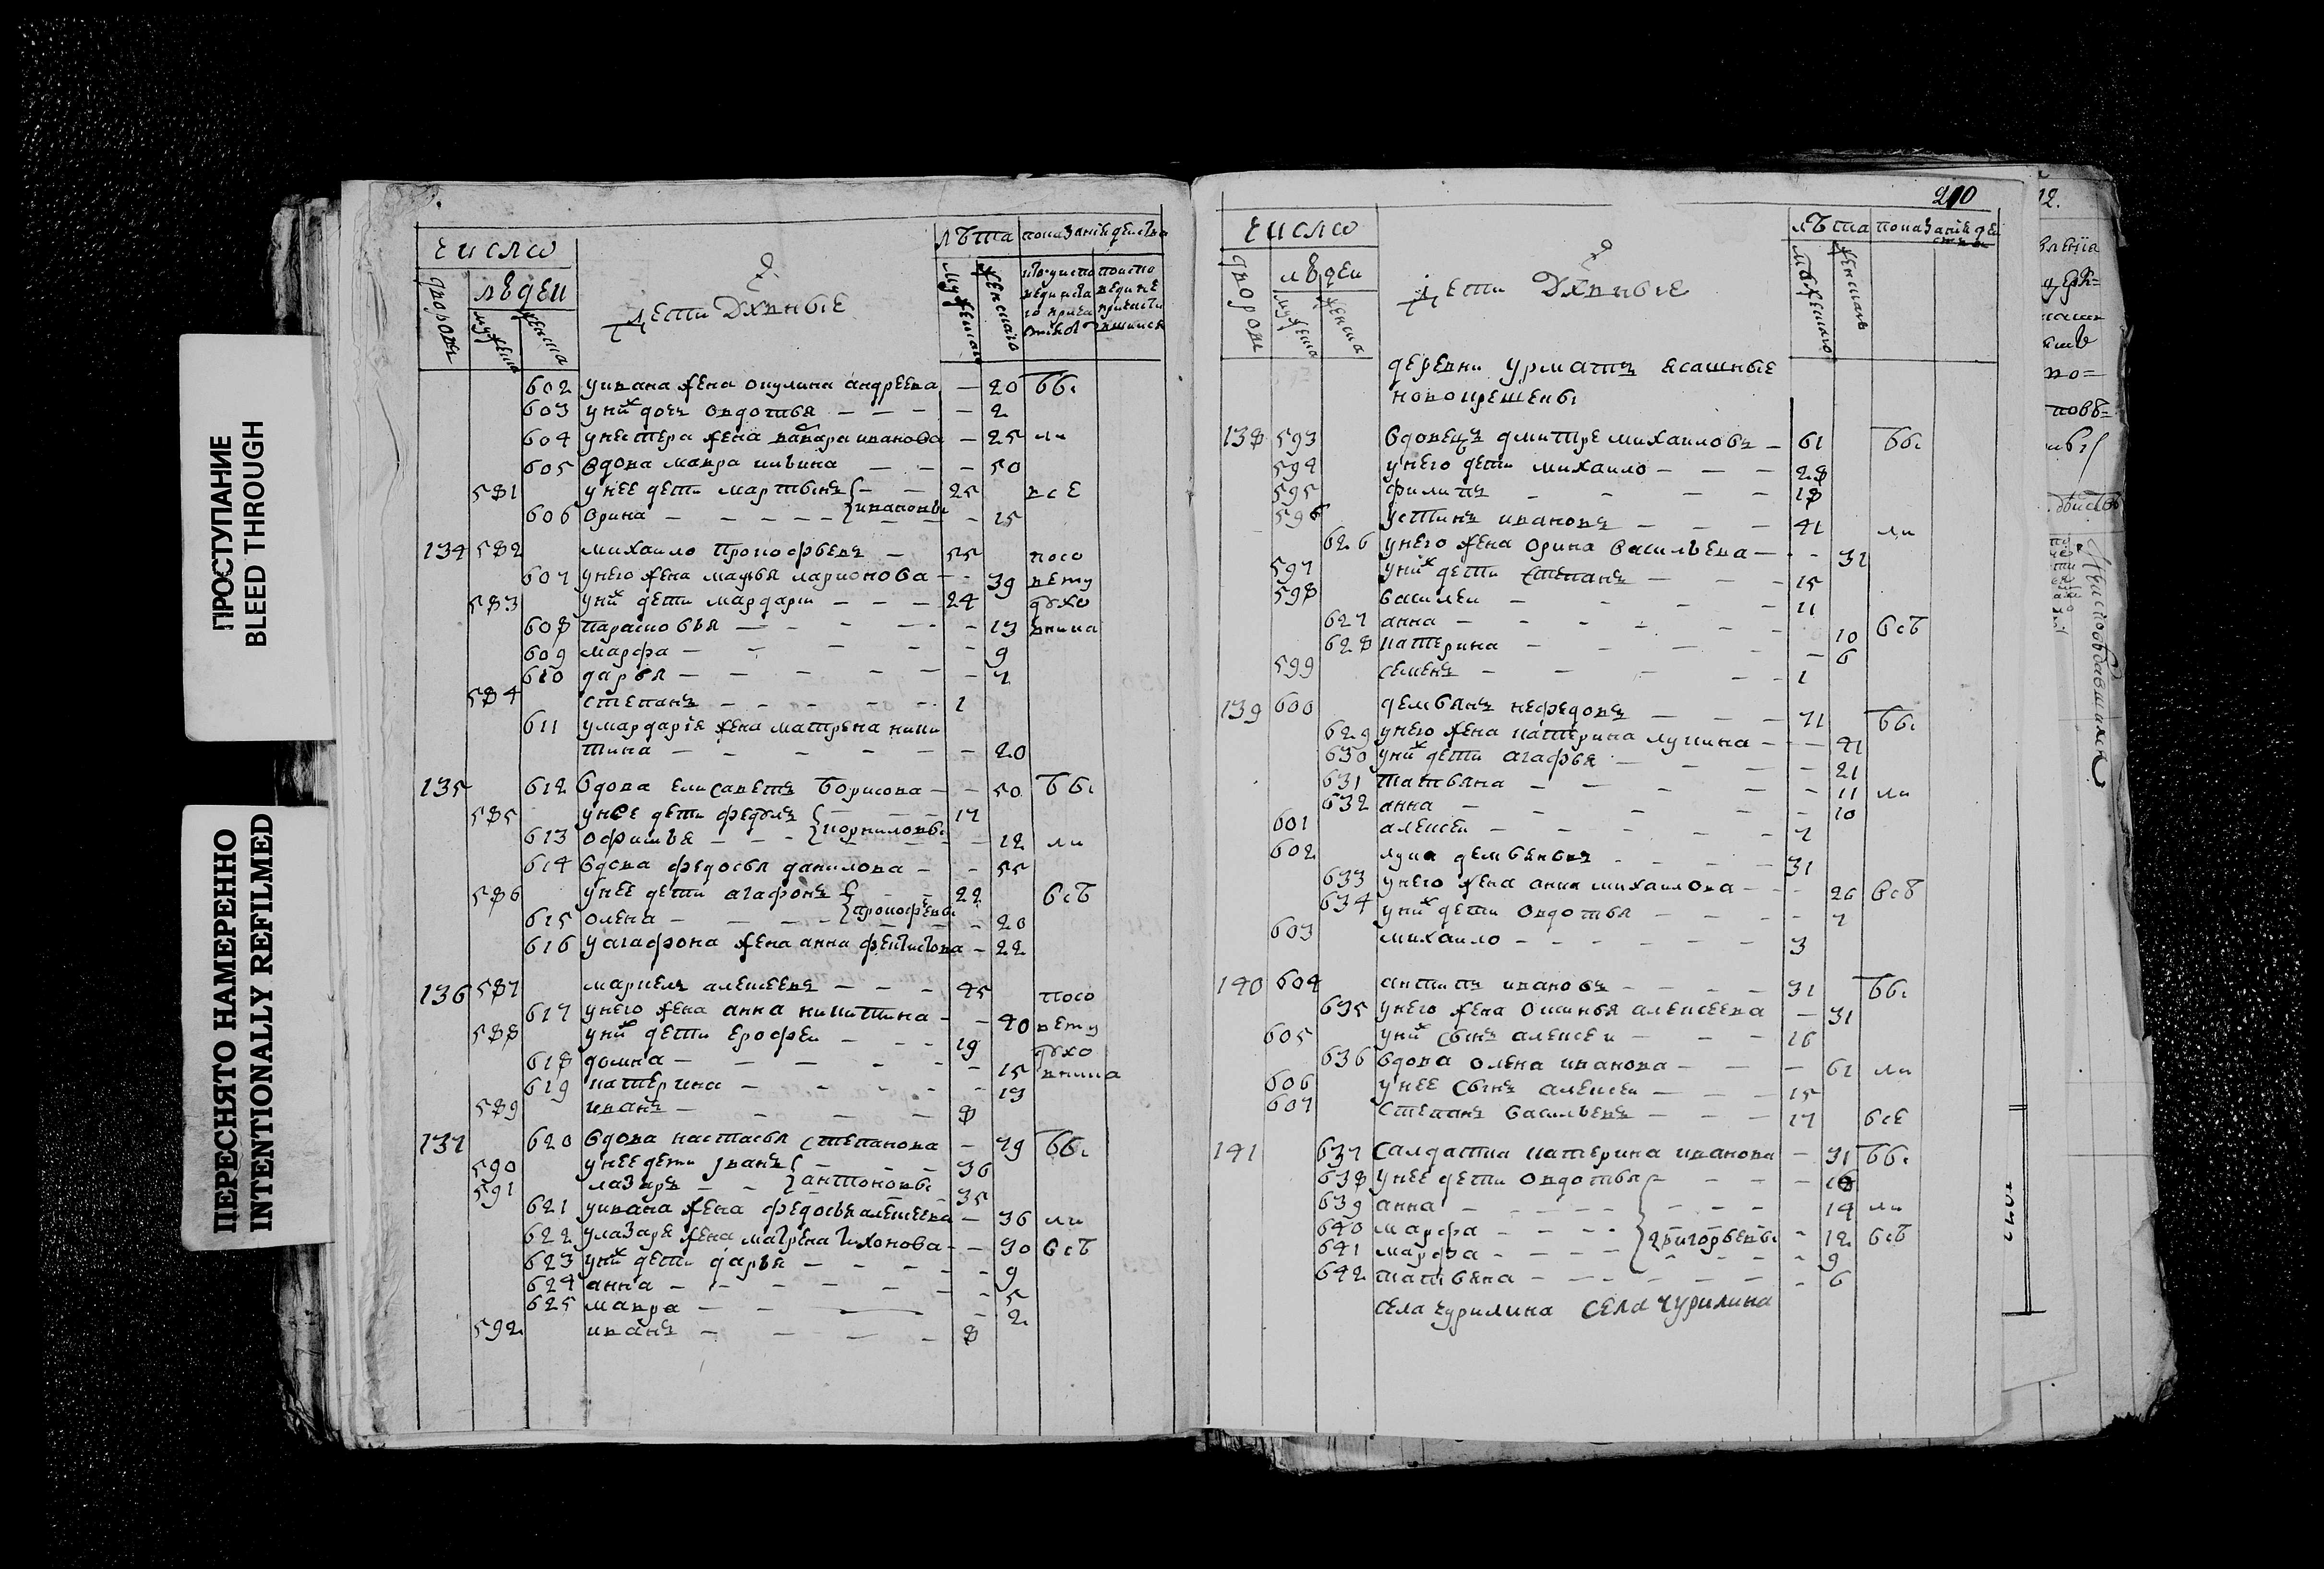 ПРОСТУПАНИЕ
BLEED THROUGH
ПЕРЕСНЯТО НАМЕРЕННО
INTENTIONALLY REFILMED
число
людеи
дети Дхвныѣ
лѣта
показание
602 уивана жена окулина андреева — 20 бы
603 у них дочь овдотья — — — 2
604 унестера жена варвара иванова — 25 ли
605 вдова мавра ильина — — — 50
581 унее дети мартынъ — — 25 все
606 орина — — — ивановы — 15
134 582 михаило прокофьевъ — 55 посо
607 унего жена марья ларионова — 39 вету
583 уних дети мардари — — — 24 духо
608 парасковья — — — — 13 вника
609 марфа — — — — 9
610 дарья — — — — — 7
584 степанъ — — — — — 1
611 умардария жена матрена ники
тина — — — — — — 20
135 612 вдова елисаветъ борисова — — 50 бы
585 унее дети федулъ — — — 17
613 офимья — — — корниловы — 12 ли
614 вдова федосья данилова — — 55
586 унее дети агафонъ — — 22 всѣ
615 олена — — — — прокофьевы — 20
616 уагафона жена анна фектистова — 22
136 587 маркелъ алексеевъ — — — 45 посо
617 унего жена анна никитина — — 40 вету
588 уних дети ерофеи — — — 19 духо
618 домна — — — — — — 15 вника
619 катерина — — — — — 13
589 иванъ — — — — 8
137 620 вдова настасья степанова — 79 бы
590 унее дети иванъ — — — 36
591 лазарь — — антоновы — 35
621 уивана жена федосья алексеева — 36 ли
622 улазаря жена матрена тихонова — — 30 всѣ
623 уних дети дарья — — — — — 9
624 анна — — — — — — — 5
625 мавра — — — — 2
592 иванъ — — — — 8
210
число
людеи
дети Дхвныѣ
лѣта
показание
деревни урматъ ясашные
новокрещены
138 593 вдовецъ дмитре михаиловъ — 61 бы
594 унего дети михаило — — — 28
595 филипъ — — — — 18
596 устинъ ивановъ — — — 41 ли
626 унего жена орина васильева — — - 31
597 уних дети степанъ — — — 15
598 василеи — — — — 11
627 анна — — — — — — 10 всѣ
628 катерина — — — — — 6
599 семенъ — — — — — 1
139 600 демьянъ нефедовъ — — — 71 бы
629 унего жена катерина лукина — — — 41
630 уних дети агафья — — — — 21
631 татьяна — — — — — 11 ли
632 анна — — — — — 10
601 алексеи — — — — — — 7
602 лука демьяновъ — — — — 31
633 унего жена анна михаилова — — - 26 всѣ
634 уних дети овдотья — — — — 7
603 михаило — — — — — — 3
140 604 антипъ ивановъ — — — — 31 бы
635 унего жена оксинья алексеева — 31
605 уних сынъ алексеи — — — 16
636 вдова олена иванова — — — 61 ли
606 унее сынъ алексеи — — — 15
607 степанъ васильевъ — — — 17 все
141 637 салдатка катерина иванова — 31 бы
638 унее дети овдотья — — — — 18
639 анна — — — — — — — — 14 ли
640 марфа — — — — григорьевы — 12 всѣ
641 марфа — — — — — — — — 9
642 татьяна — — — — — — — 6
села чурилина села чурилина